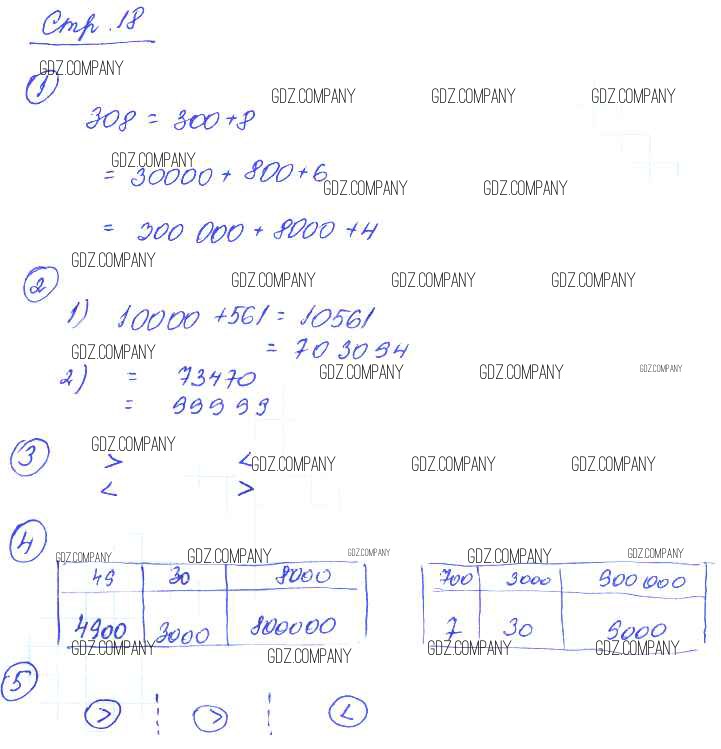 Стр. 18
GDZ.COMPANY
1
GDZ.COMPANY GDZ.COMPANY GDZ.COMPANY
308 = 300 + 8
GDZ.COMPANY
= 30000 + 800 + 6
GDZ.COMPANY GDZ.COMPANY
= 300 000 + 8000 + 4
GDZ.COMPANY
2
GDZ.COMPANY GDZ.COMPANY GDZ.COMPANY
1) 10000 + 561 = 10561
GDZ.COMPANY
= 703094
2) = 73470
GDZ.COMPANY GDZ.COMPANY GDZ.COMPANY
= 99999
GDZ.COMPANY
3
> <
GDZ.COMPANY GDZ.COMPANY GDZ.COMPANY
< >
4
GDZ.COMPANY GDZ.COMPANY GDZ.COMPANY GDZ.COMPANY GDZ.COMPANY
49 30 8000 700 3000 900 000
4900 3000 800000 7 30 9000
GDZ.COMPANY GDZ.COMPANY GDZ.COMPANY GDZ.COMPANY
5
> > <